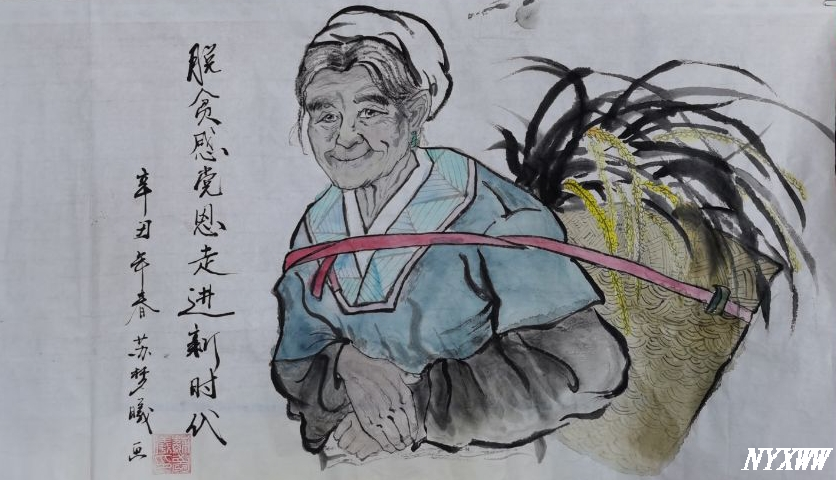 脱贫感党恩走进新时代
辛丑年春 苏梦曦 画
NYXWW